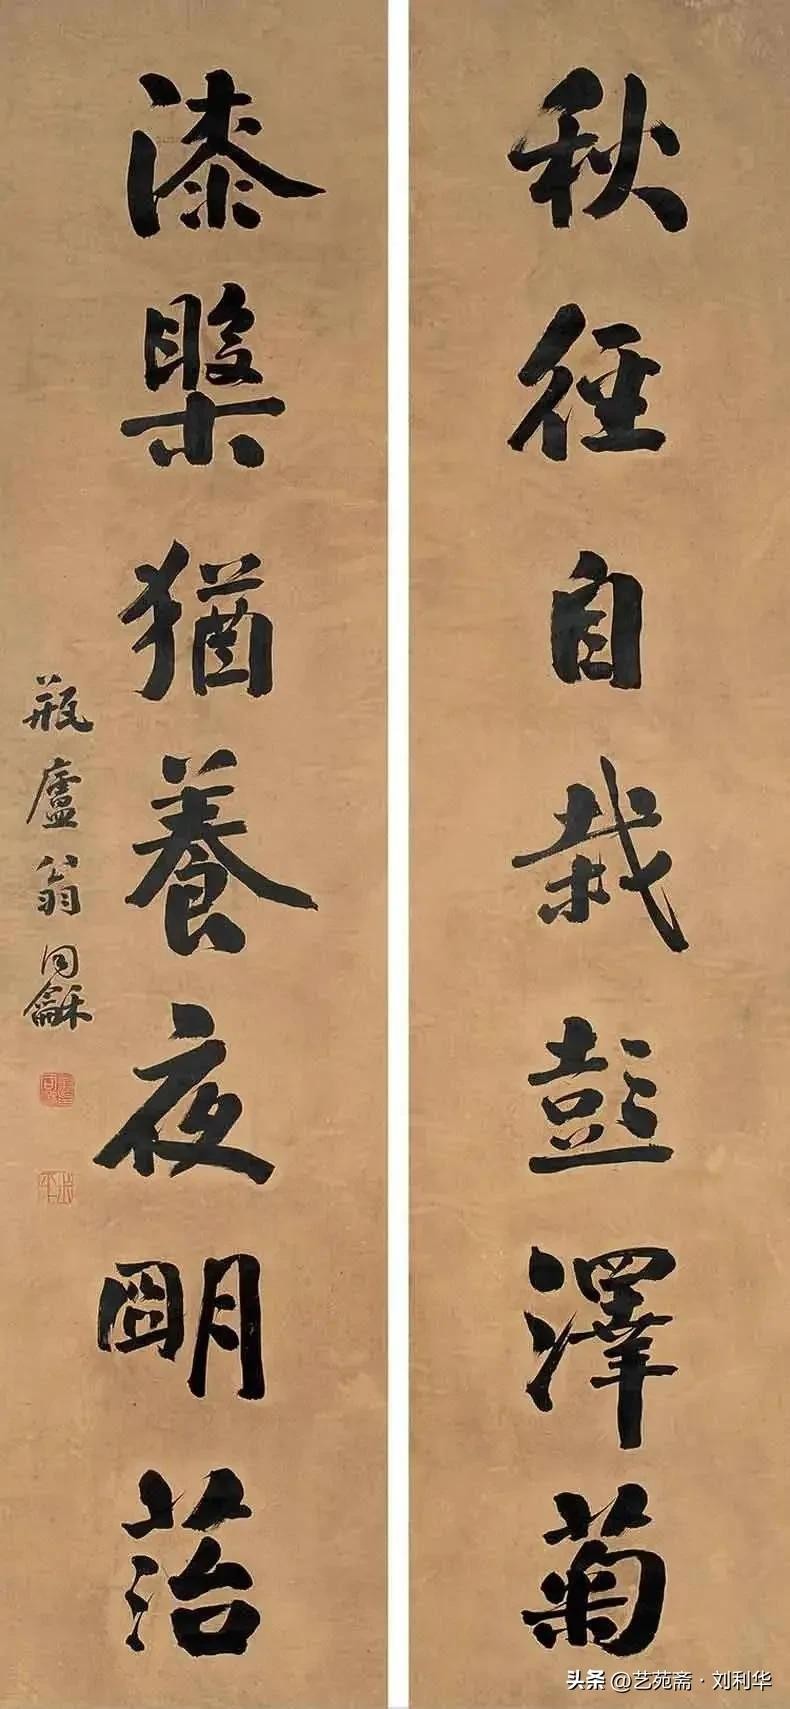 秋徑自栽彭澤菊
漆槃猶養夜朙菭
瓶廬翁同龢
头条 @艺苑斋·刘利华